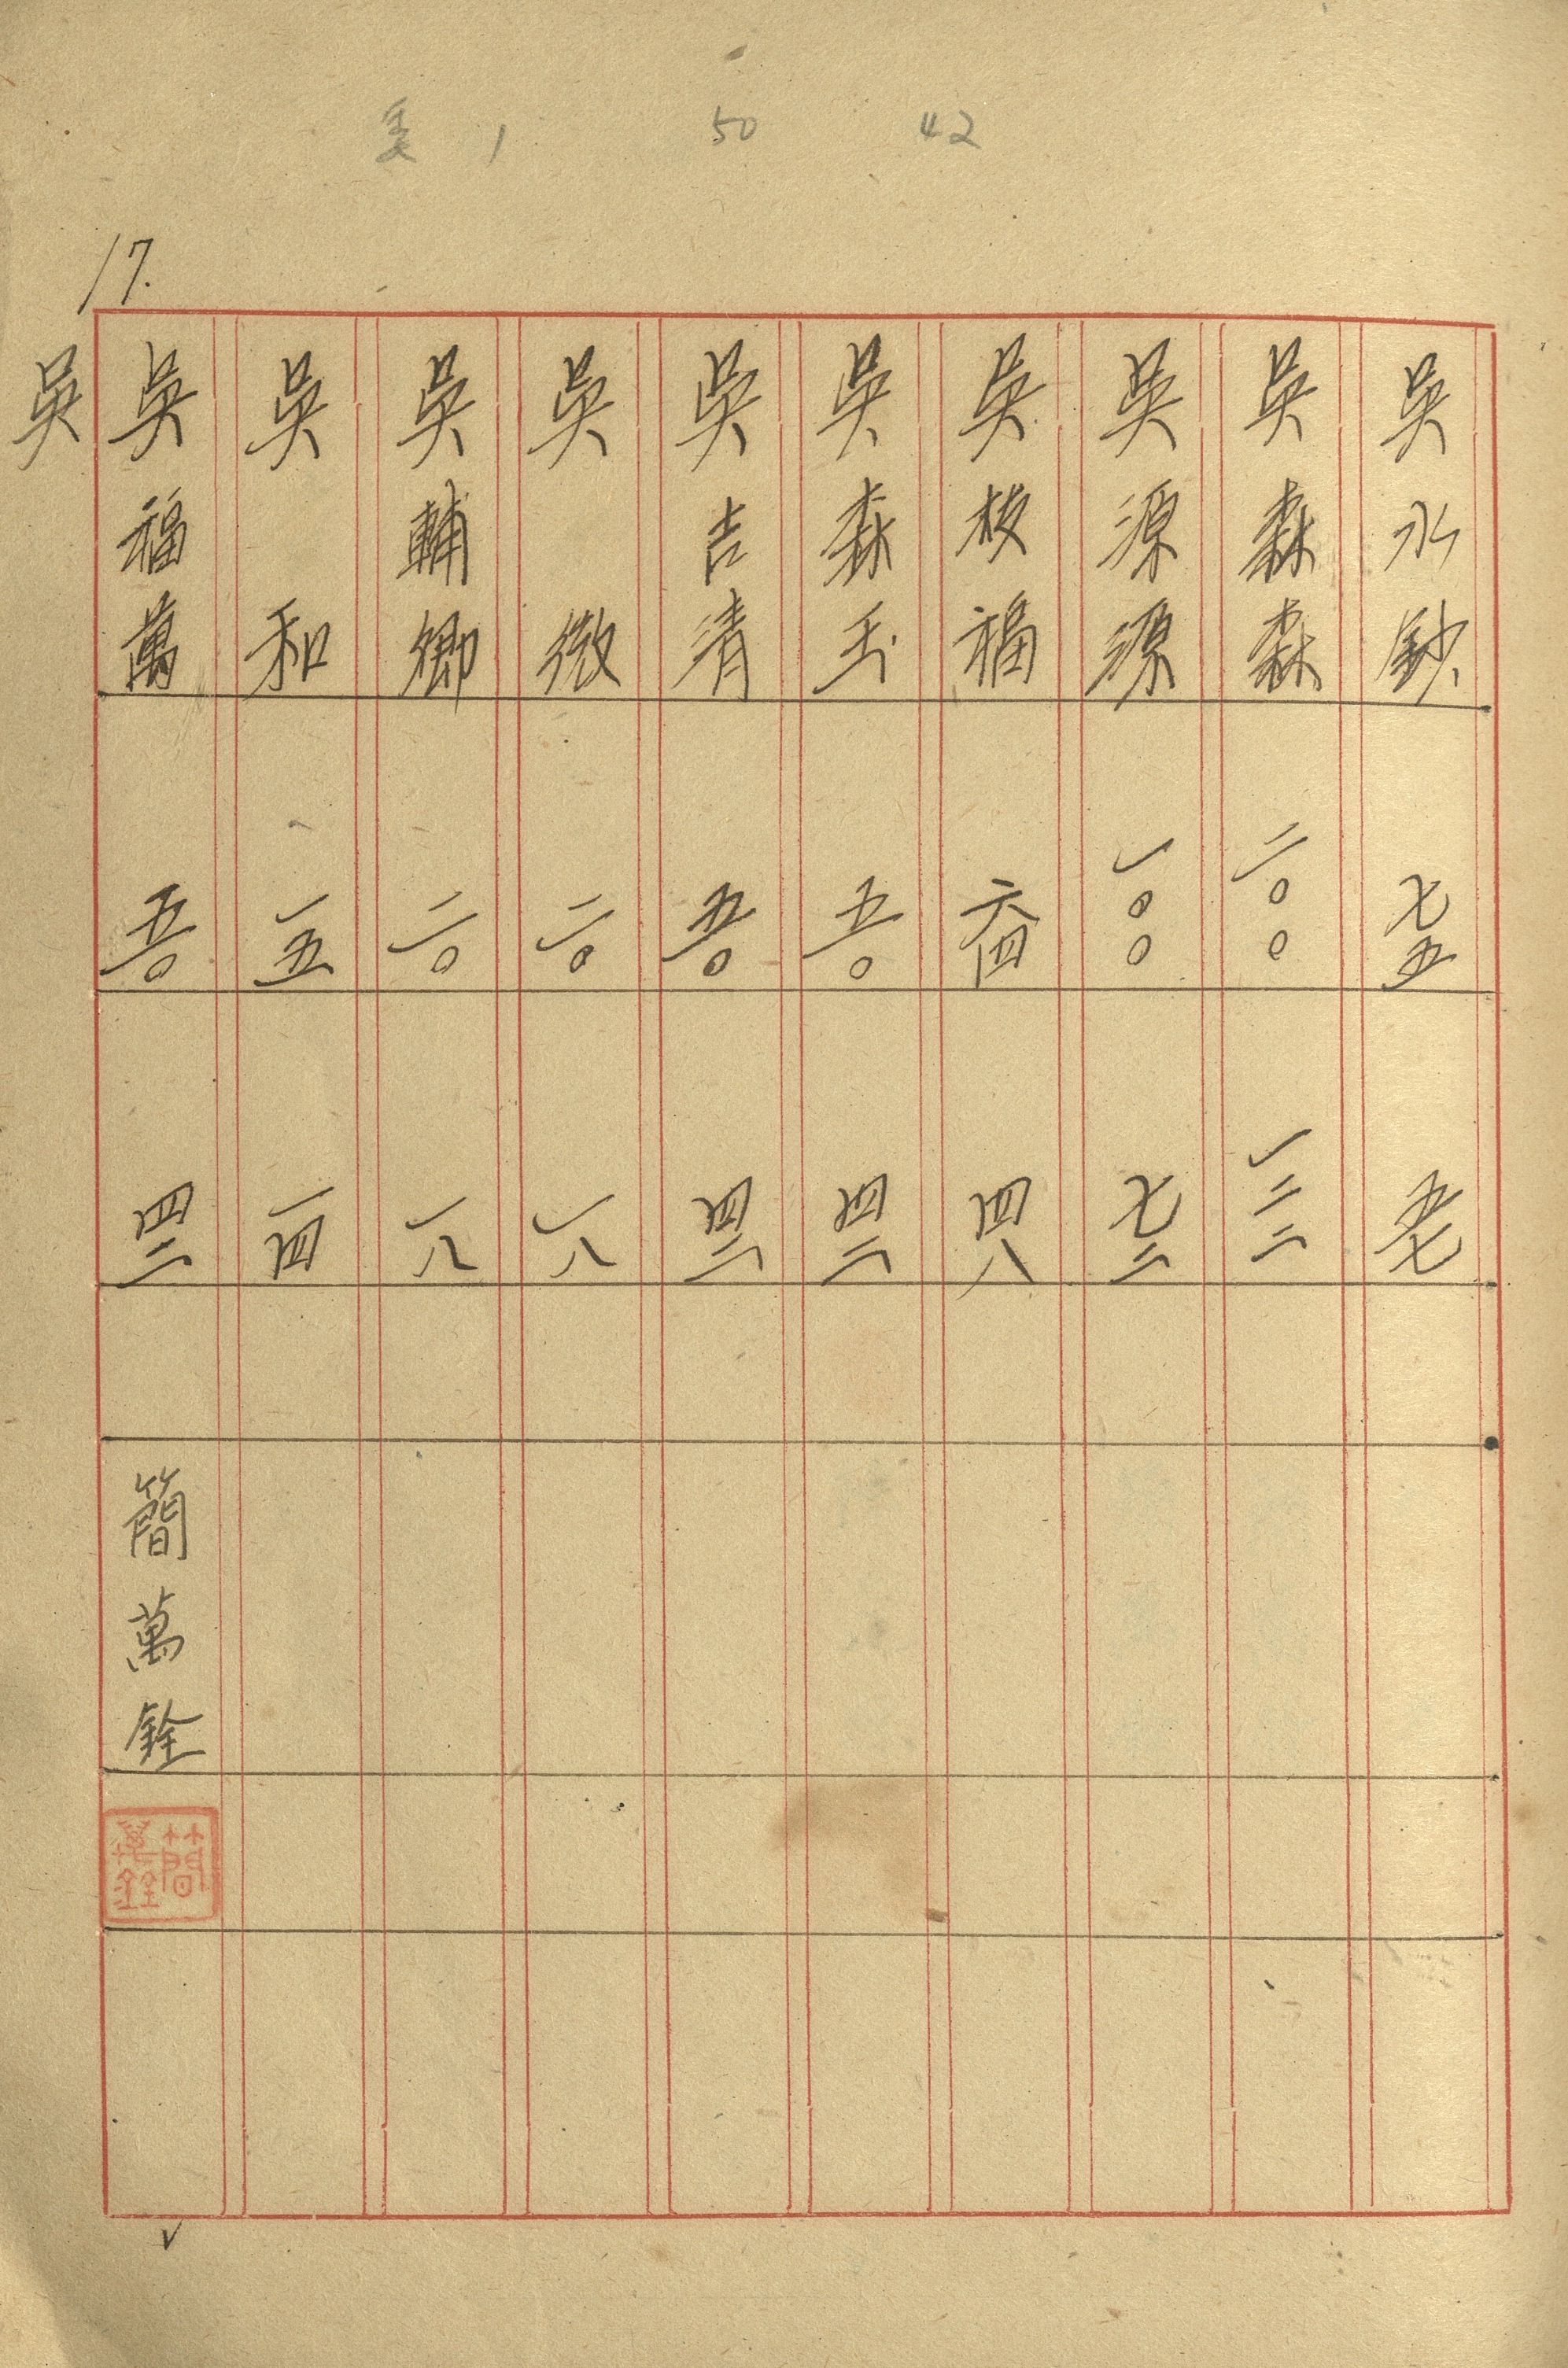 委 1 50 42
17.
吳水鈔 七五 五七
吳森森 二〇〇 一二二
吳源源 一〇〇 七二
吳枝福 六四 四八
吳森玉 五〇 四二
吳吉清 五〇 四二
吳徵 二〇 一八
吳輔卿 二〇 一八
吳和 一五 一四
吳福萬 五〇 四二 簡萬銓
簡萬銓
吳